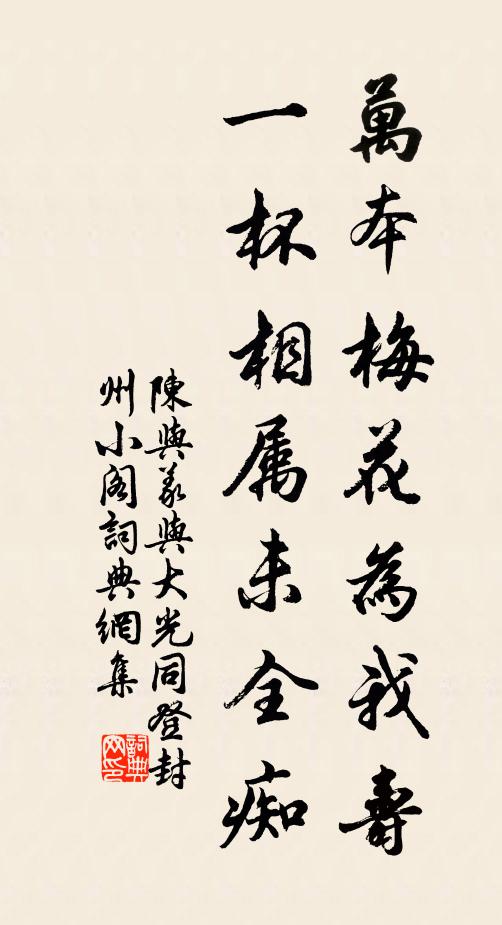 萬本梅花為我壽
一杯相属未全痴
陳與義與大光同登封
州小阁詞典網集
詞典網印